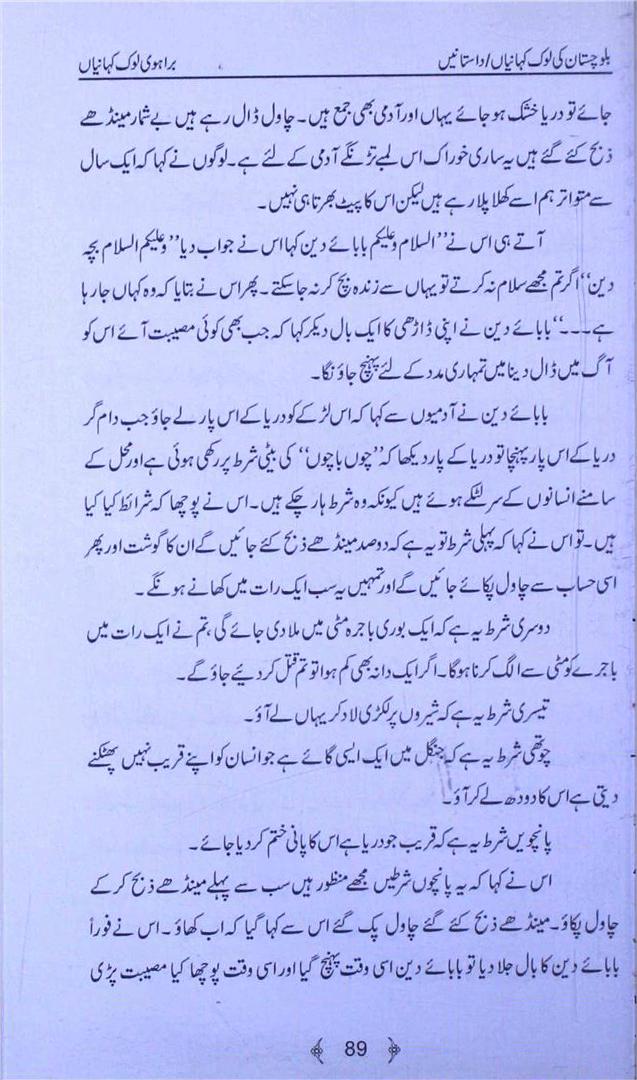 بلوچستان کی لوک کہانیاں/داستانیں
براہوی لوک کہانیاں
جائے تو دریا خشک ہو جائے یہاں اور آدمی بھی جمع ہیں۔ چاول ڈال رہے ہیں بے شمار مینڈھے
ذبح کئے گئے ہیں یہ ساری خوراک اس لمبے تڑنگے آدمی کے لئے ہے۔ لوگوں نے کہا کہ ایک سال
سے متواتر ہم اسے کھلا پلا رہے ہیں لیکن اس کا پیٹ بھرتا ہی نہیں۔
آتے ہی اس نے ”السلام و علیکم بابائے دین کہا اس نے جواب دیا ”و علیکم السلام بچہ
دین“ اگر تم مجھے سلام نہ کرتے تو یہاں سے زندہ بچ کر نہ جا سکتے۔ پھر اس نے بتایا کہ وہ کہاں جا رہا
ہے۔۔۔“ بابائے دین نے اپنی ڈاڑھی کا ایک بال دیکر کہا کہ جب بھی کوئی مصیبت آئے اس کو
آگ میں ڈال دینا میں تمہاری مدد کے لئے پہنچ جاؤنگا۔
بابائے دین نے آدمیوں سے کہا کہ اس لڑکے کو دریا کے اس پار لے جاؤ جب دام گر
دریا کے اس پار پہنچا تو دریا کے پار دیکھا کہ ”چوں باچوں“ کی بیٹی شرط پر رکھی ہوئی ہے اور محل کے
سامنے انسانوں کے سر لٹکے ہوئے ہیں کیونکہ وہ شرط ہار چکے ہیں۔ اس نے پوچھا کہ شرائط کیا کیا
ہیں۔ تو اس نے کہا کہ پہلی شرط تو یہ ہے کہ دو صد مینڈھے ذبح کئے جائیں گے ان کا گوشت اور پھر
اسی حساب سے چاول پکائے جائیں گے اور تمہیں یہ سب ایک رات میں کھانے ہونگے۔
دوسری شرط یہ ہے کہ ایک بوری باجرہ مٹی میں ملا دی جائے گی، تم نے ایک رات میں
باجرے کو مٹی سے الگ کرنا ہوگا۔ اگر ایک دانہ بھی کم ہوا تو تم قتل کر دیئے جاؤ گے۔
تیسری شرط یہ ہے کہ شیروں پر لکڑی لاد کر یہاں لے آؤ۔
چوتھی شرط یہ ہے کہ جنگل میں ایک ایسی گائے ہے جو انسان کو اپنے قریب نہیں پھٹکنے
دیتی ہے اس کا دودھ لے کر آؤ۔
پانچویں شرط یہ ہے کہ قریب جو دریا ہے اس کا پانی ختم کر دیا جائے۔
اس نے کہا کہ یہ پانچوں شرطیں مجھے منظور ہیں سب سے پہلے مینڈھے ذبح کر کے
چاول پکاؤ۔ مینڈھے ذبح کئے گئے چاول پک گئے اس سے کہا گیا کہ اب کھاؤ۔ اس نے فوراً
بابائے دین کا بال جلا دیا تو بابائے دین اسی وقت پہنچ گیا اور اسی وقت پوچھا کیا مصیبت پڑی
89